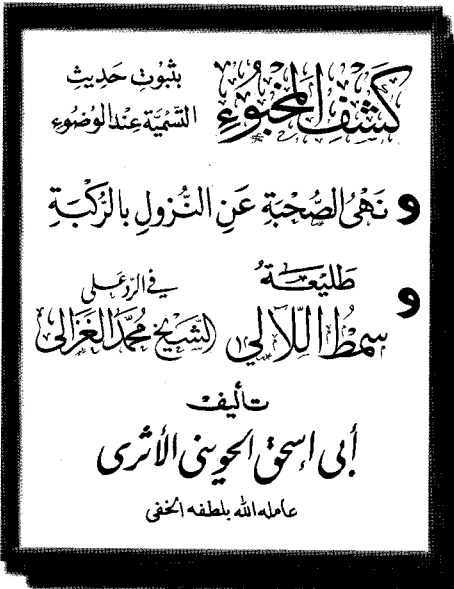 كَشْفُ المَخْبُوءِ
بِثُبُوتِ حَدِيثِ
التَّسْمِيَةِ عِنْدَ الوُضُوءِ
و نَهْيُ الصُّحْبَةِ عَنِ النُّزُولِ بِالرُّكْبَةِ
و طَلِيْعَةُ
سِمْطُ اللَّآلِي
في الرَّدِّ عَلى
الشَّيْخِ مُحَمَّدِ الغَزَالى
تأليف
أبى إسحق الحوينى الأثرى
عامله الله بلطفه الخفى